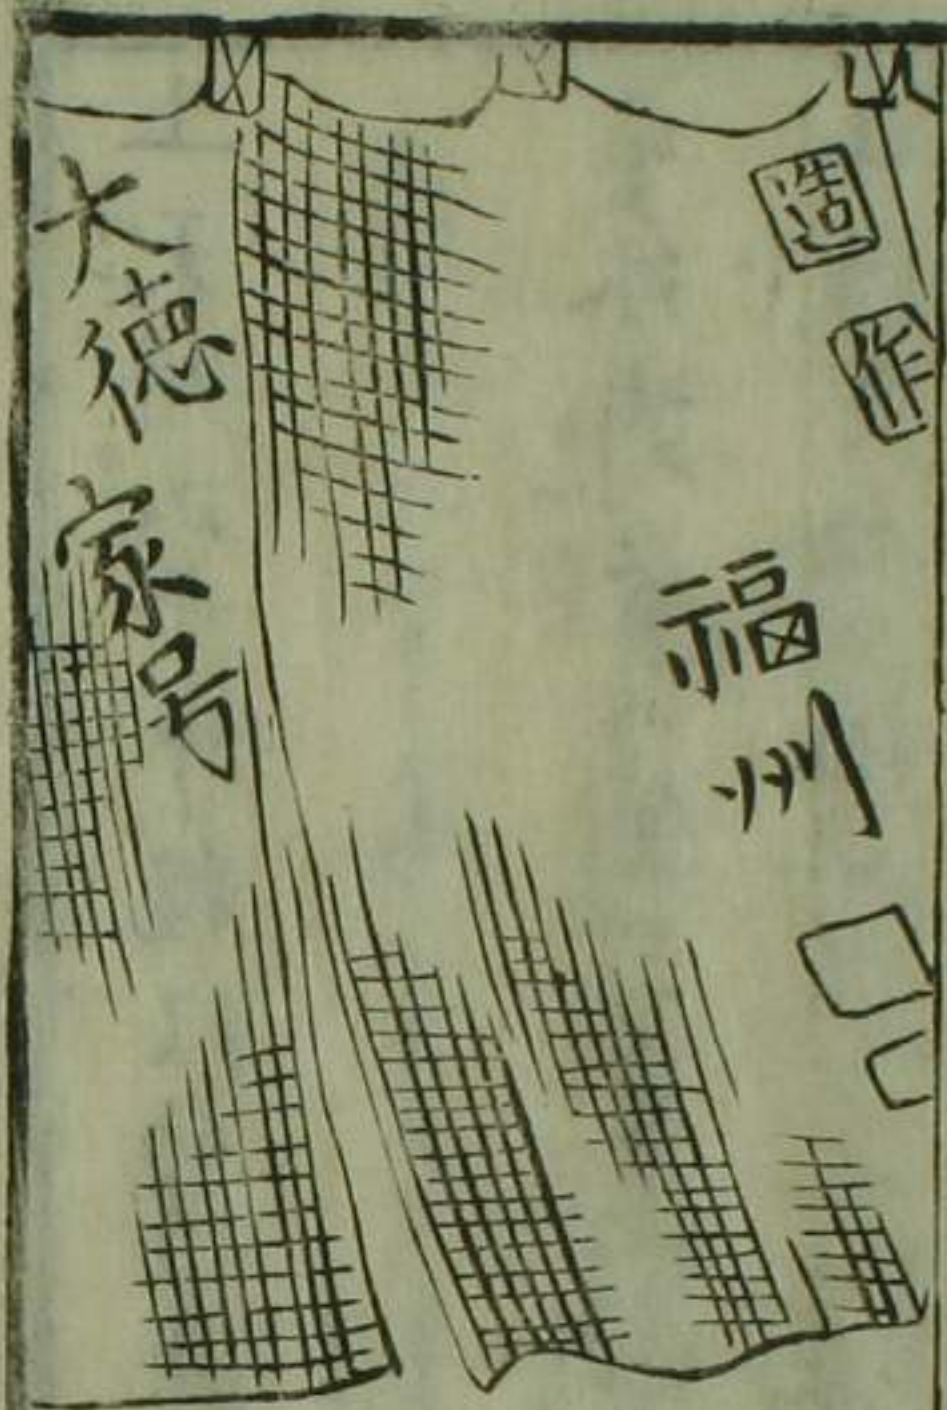 造作
福州
大德家号